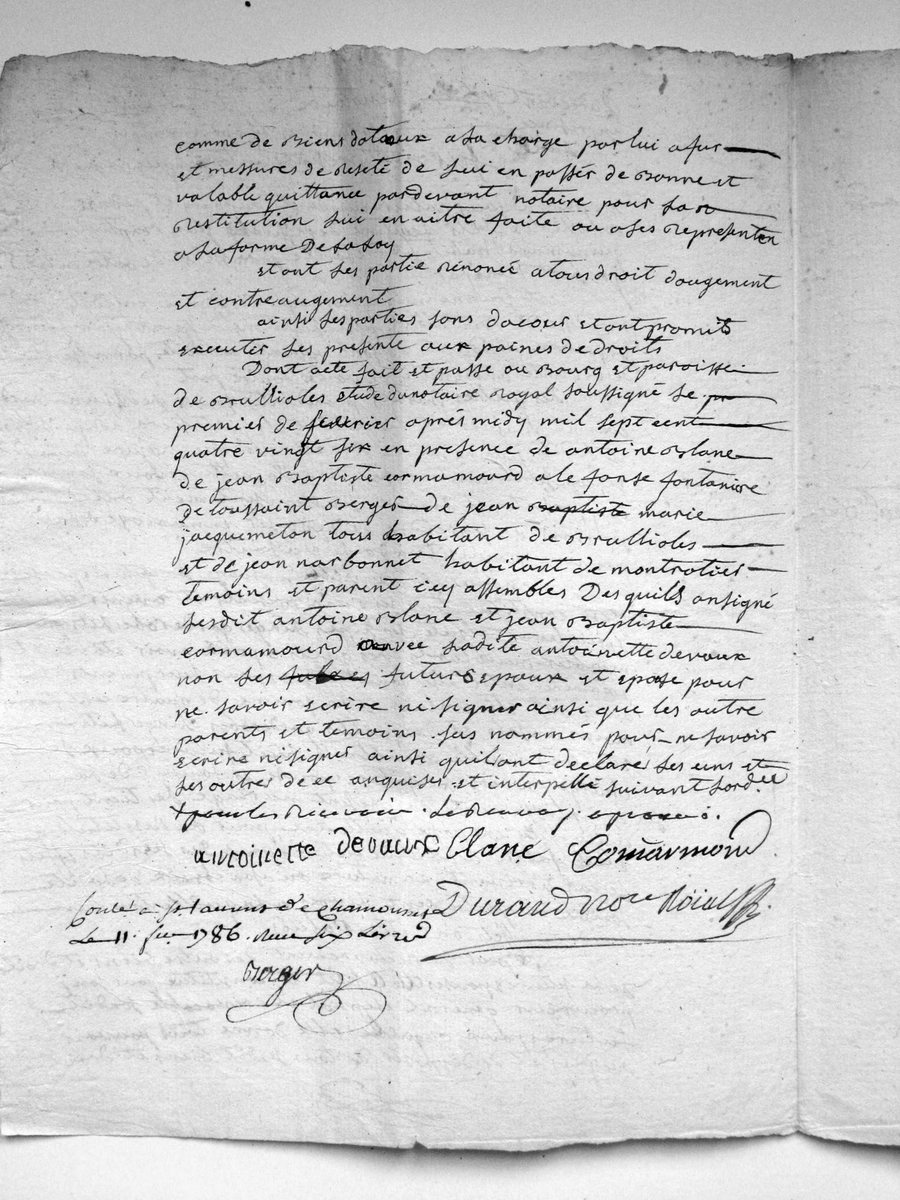 comme de Biens dotaux a la charge par lui a fur
et messures de Resete de lui en passér de Bonne et
valable quittance pardevant notaire pour la
Restitution lui en aitre faite ou a ses Represente
a la forme De la loy
et ont les partie Rénoncé a tous droit daugement
et contre augement
ainsi les parties sons dacour et ont promis
executer les presente aux paines de droits
Dont acte fait et passe au Bourg et paroisse
de Brullioles etude du notaire Royal soussigné le pr
premier de fevrier aprés midy mil sept cent
quatre vingt six en presence de antoine Blanc
de jean Baptiste cormamourd alefonse fontaniere
de toussaint Berger de jean Baptiste marie
jacquemeton tous habitant de Brullioles
et de jean narbonnet habitant de montrotier
temoins et parent icy assembles Desquils onsigné
lesdit antoine Blanc et jean Baptiste
cormamourd avec ladite antoinette devaux
non les futurs epoux et epose pour
ne savoir ecrire ni signer ainsi que les autre
parents et temoins sus nommés pour ne savoir
ecrire ni signer ainsi quil ont declaré les uns et
les autre de ce anquises et interpellé suivant lord.ce
antoinette devaux Blanc Comarmond
Durand No.re Roial
Conlé a st. laurens de chamousset
Le 11. fer 1786. Reçu six Livres
Berger